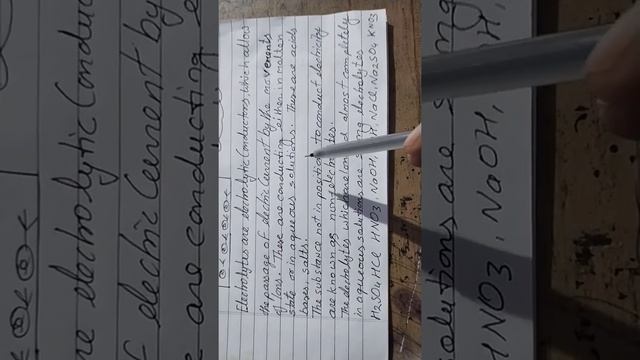 Electrolytes are electrolytic Conductors, which allows
the passage of electric Current by the movements
of Ions. These are conducting either in molten
state or in aqueous solutions. These are acids
bases, salts.
The substance not in position to conduct electricity
are known as nonelectrolytes.
The electrolytes which are almost completely
in aqueous solution are electrolytes
H2SO4 HCl HNO3, NaOH, NaCl, Na2SO4 KNO3